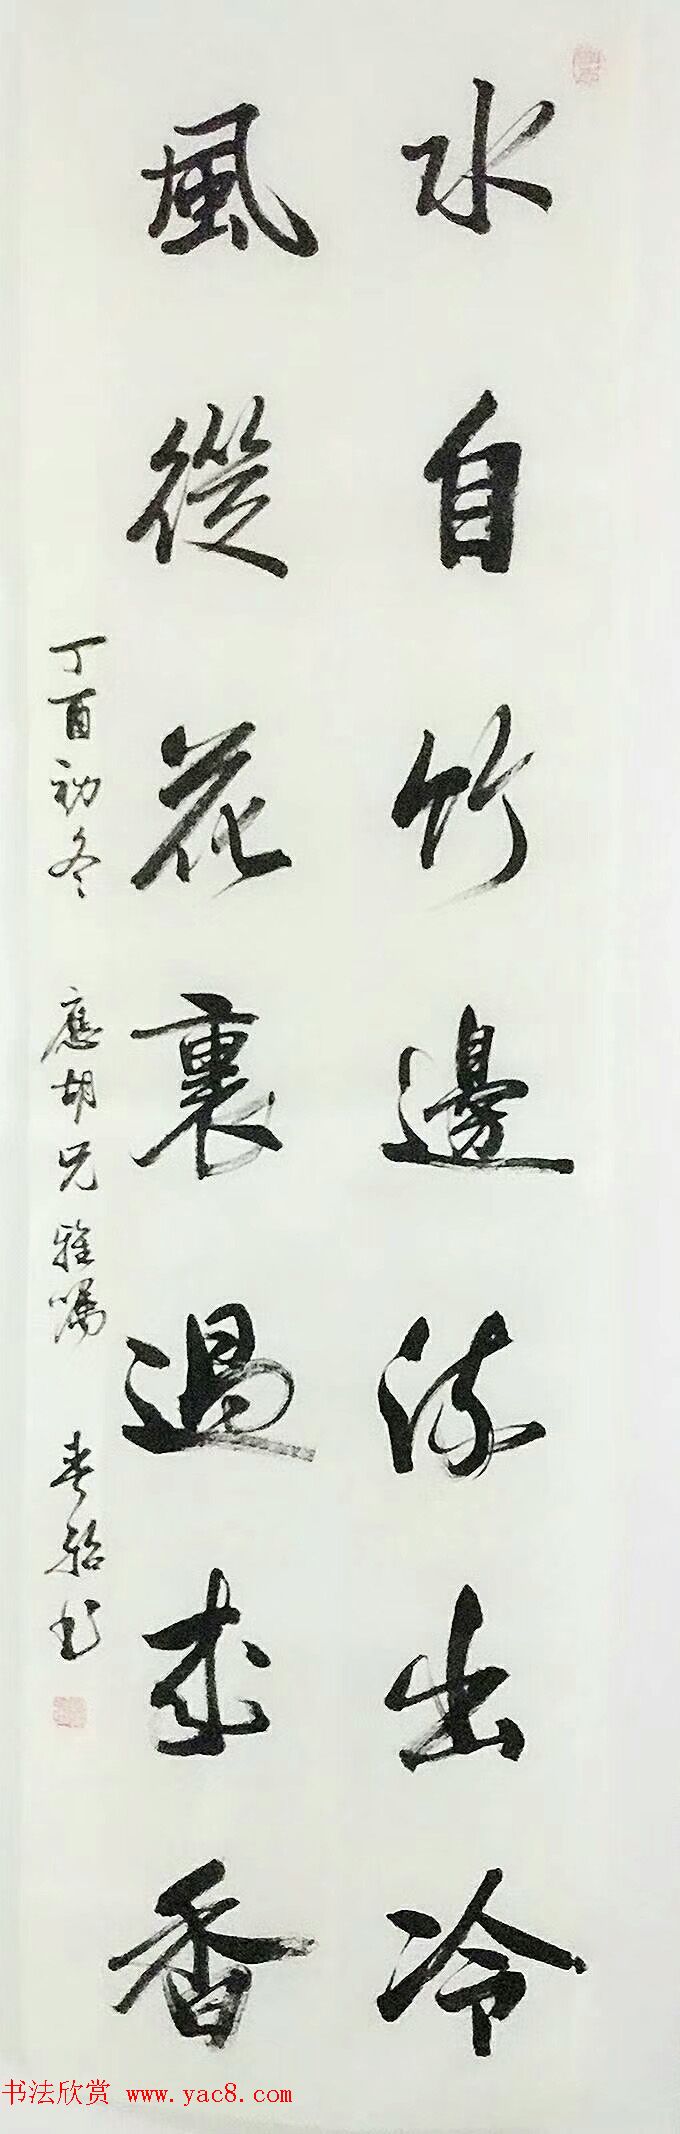 水自竹邊流出冷
風從花裏過來香
丁酉初冬 應胡兄雅嘱 春貽书
书法欣赏 www.yac8.com